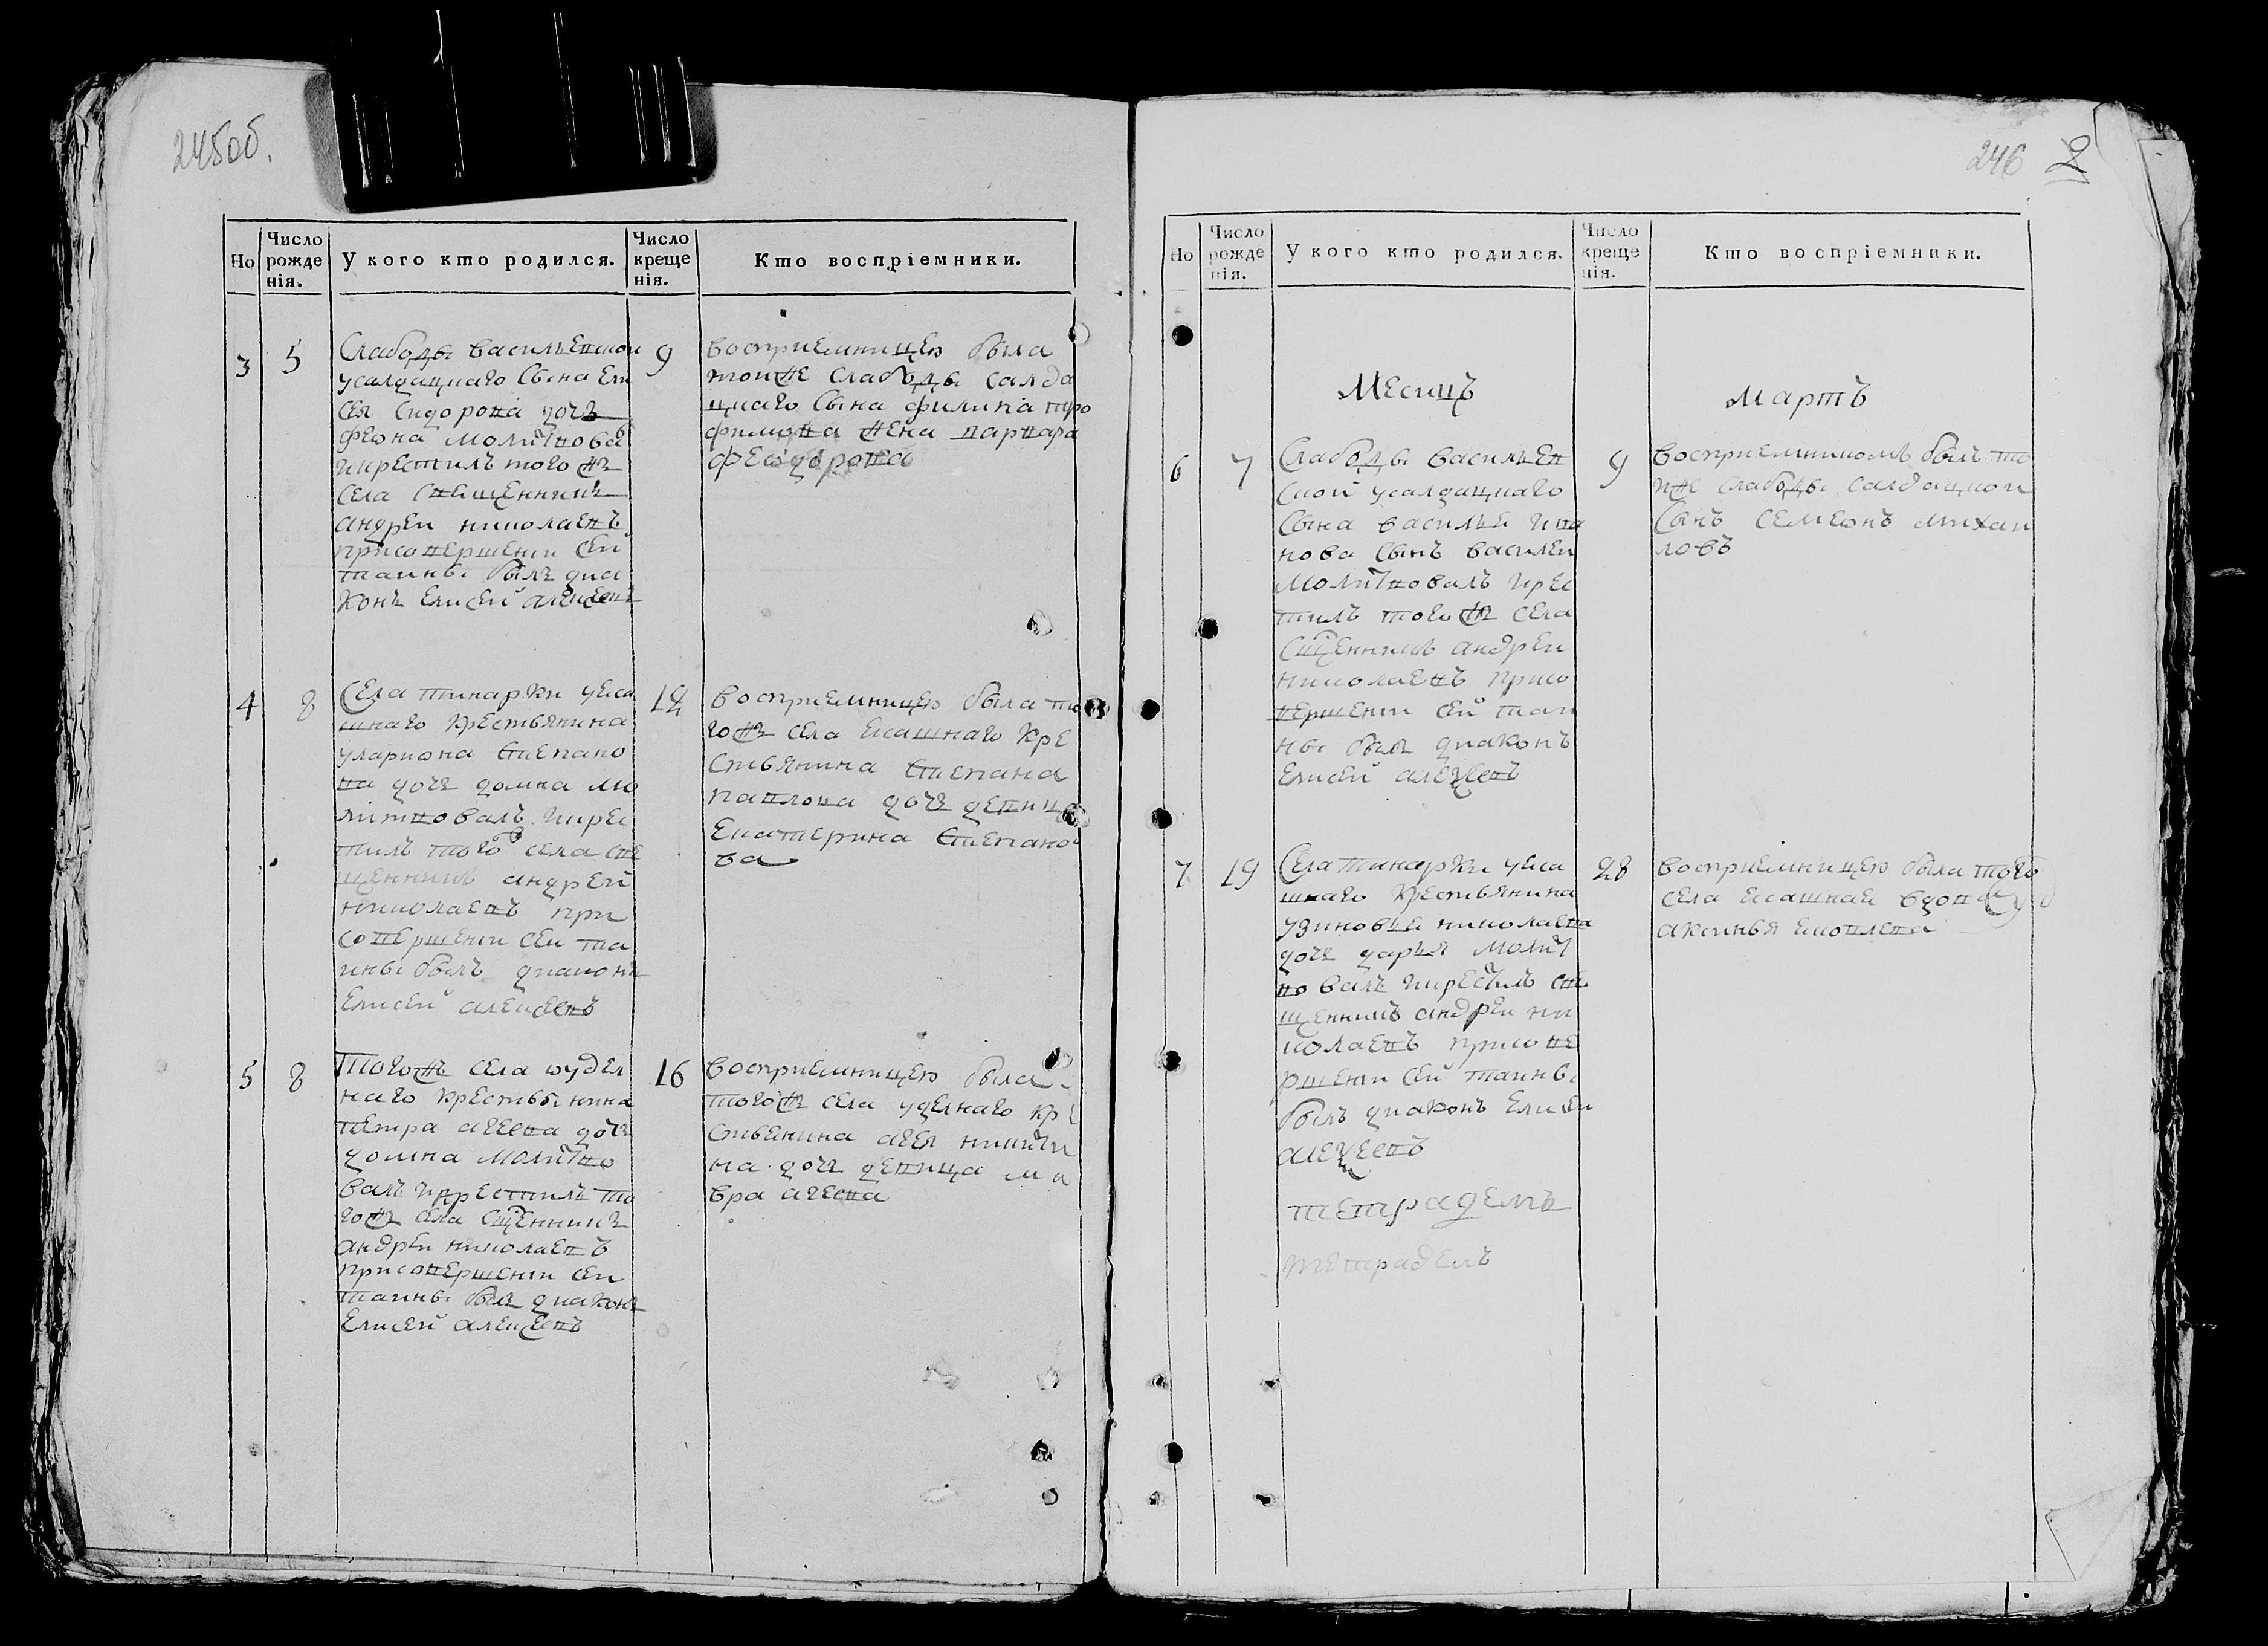 245об.
Но
Число рожденія.
У кого кто родился.
Число крещенія.
Кто воспріемники.
3
5
Слабоды васильевской
усалдацкаго сына Ели
сея Сидорова дочь
феѡна молитвова
икрестилъ того жъ
села священникъ
андреи николаевъ
присовершени сей
таины былъ диа
конъ Елисей алексеевъ
9
восприемницею была
тойже слабоды салда
цкаго сына филипа тро
фимова жена варвара
феѡдорова
4
8
Села тинарки уяса
шнаго крестьянина
улариона степано
ва дочь домна мо
литвовалъ икрес
тилъ того села све
щенникъ андрей
николаевъ при
совершени сеи та
ины былъ диаконъ
Елисей алексеевъ
12
восприемницею была то
гожъ села ясашнаго кре
стьянина степана
павлова дочь девица
Екатерина степано
ва
5
8
Тогожъ села ѡудел
наго крестьянина
петра агеева дочь
домна молитво
валъ икрестилъ то
гожъ села сщенникъ
андреи николаевъ
присовершени сеи
таины былъ диаконъ
Елисей алексеевъ
16
восприемницею была
тогожъ села уделнаго кре
стьянина агея никити
на дочь девица ма
вра агеева
246 2
Но
Число рожденія.
У кого кто родился.
Число крещенія.
Кто воспріемники.
Месяцъ
Мартъ
6
7
Слабоды васильев
ской усалдацкаго
сына василья ива
нова сынъ василеи
молитвовалъ икрес
тилъ того жъ села
сщенникъ андреи
николаевъ присо
вершени сей таи
ны былъ диаконъ
Елисей алексеевъ
9
восприемникомъ былъ то
йже слабоды салдацкои
сынъ семеѡнъ михаи
ловъ
7
19
Села тинарки уяса
шнаго крестьянина
удиновья николаева
дочь дарья молит
вовалъ икрестилъ све
щенникъ андреи ни
колаевъ присове
ршени сей таины
былъ диаконъ Елисеи
алексеевъ
тетрадемъ
тетрадемъ
28
восприемницею была того
села ясашная вдова
аксинья яковлева